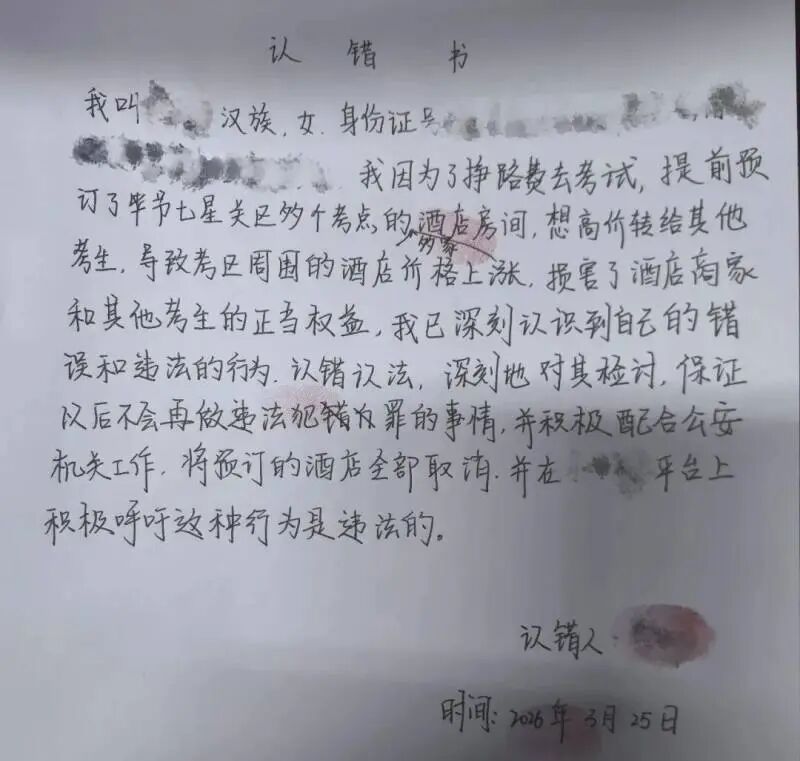 认错书
我叫 汉族,女.身份证号
我因为了挣路费去考试,提前预
订了毕节七星关区多个考点的酒店房间,想高价转给其他
多家
考生,导致考区周围的酒店价格上涨,损害了酒店商家
和其他考生的正当权益,我已深刻认识到自己的错
误和违法的行为.认错认法,深刻地对其检讨,保证
以后不会再做违法犯错 罪的事情,并积极配合公安
机关工作.将预订的酒店全部取消.并在 平台上
积极呼吁这种行为是违法的。
认错人:
时间:2026年3月25日